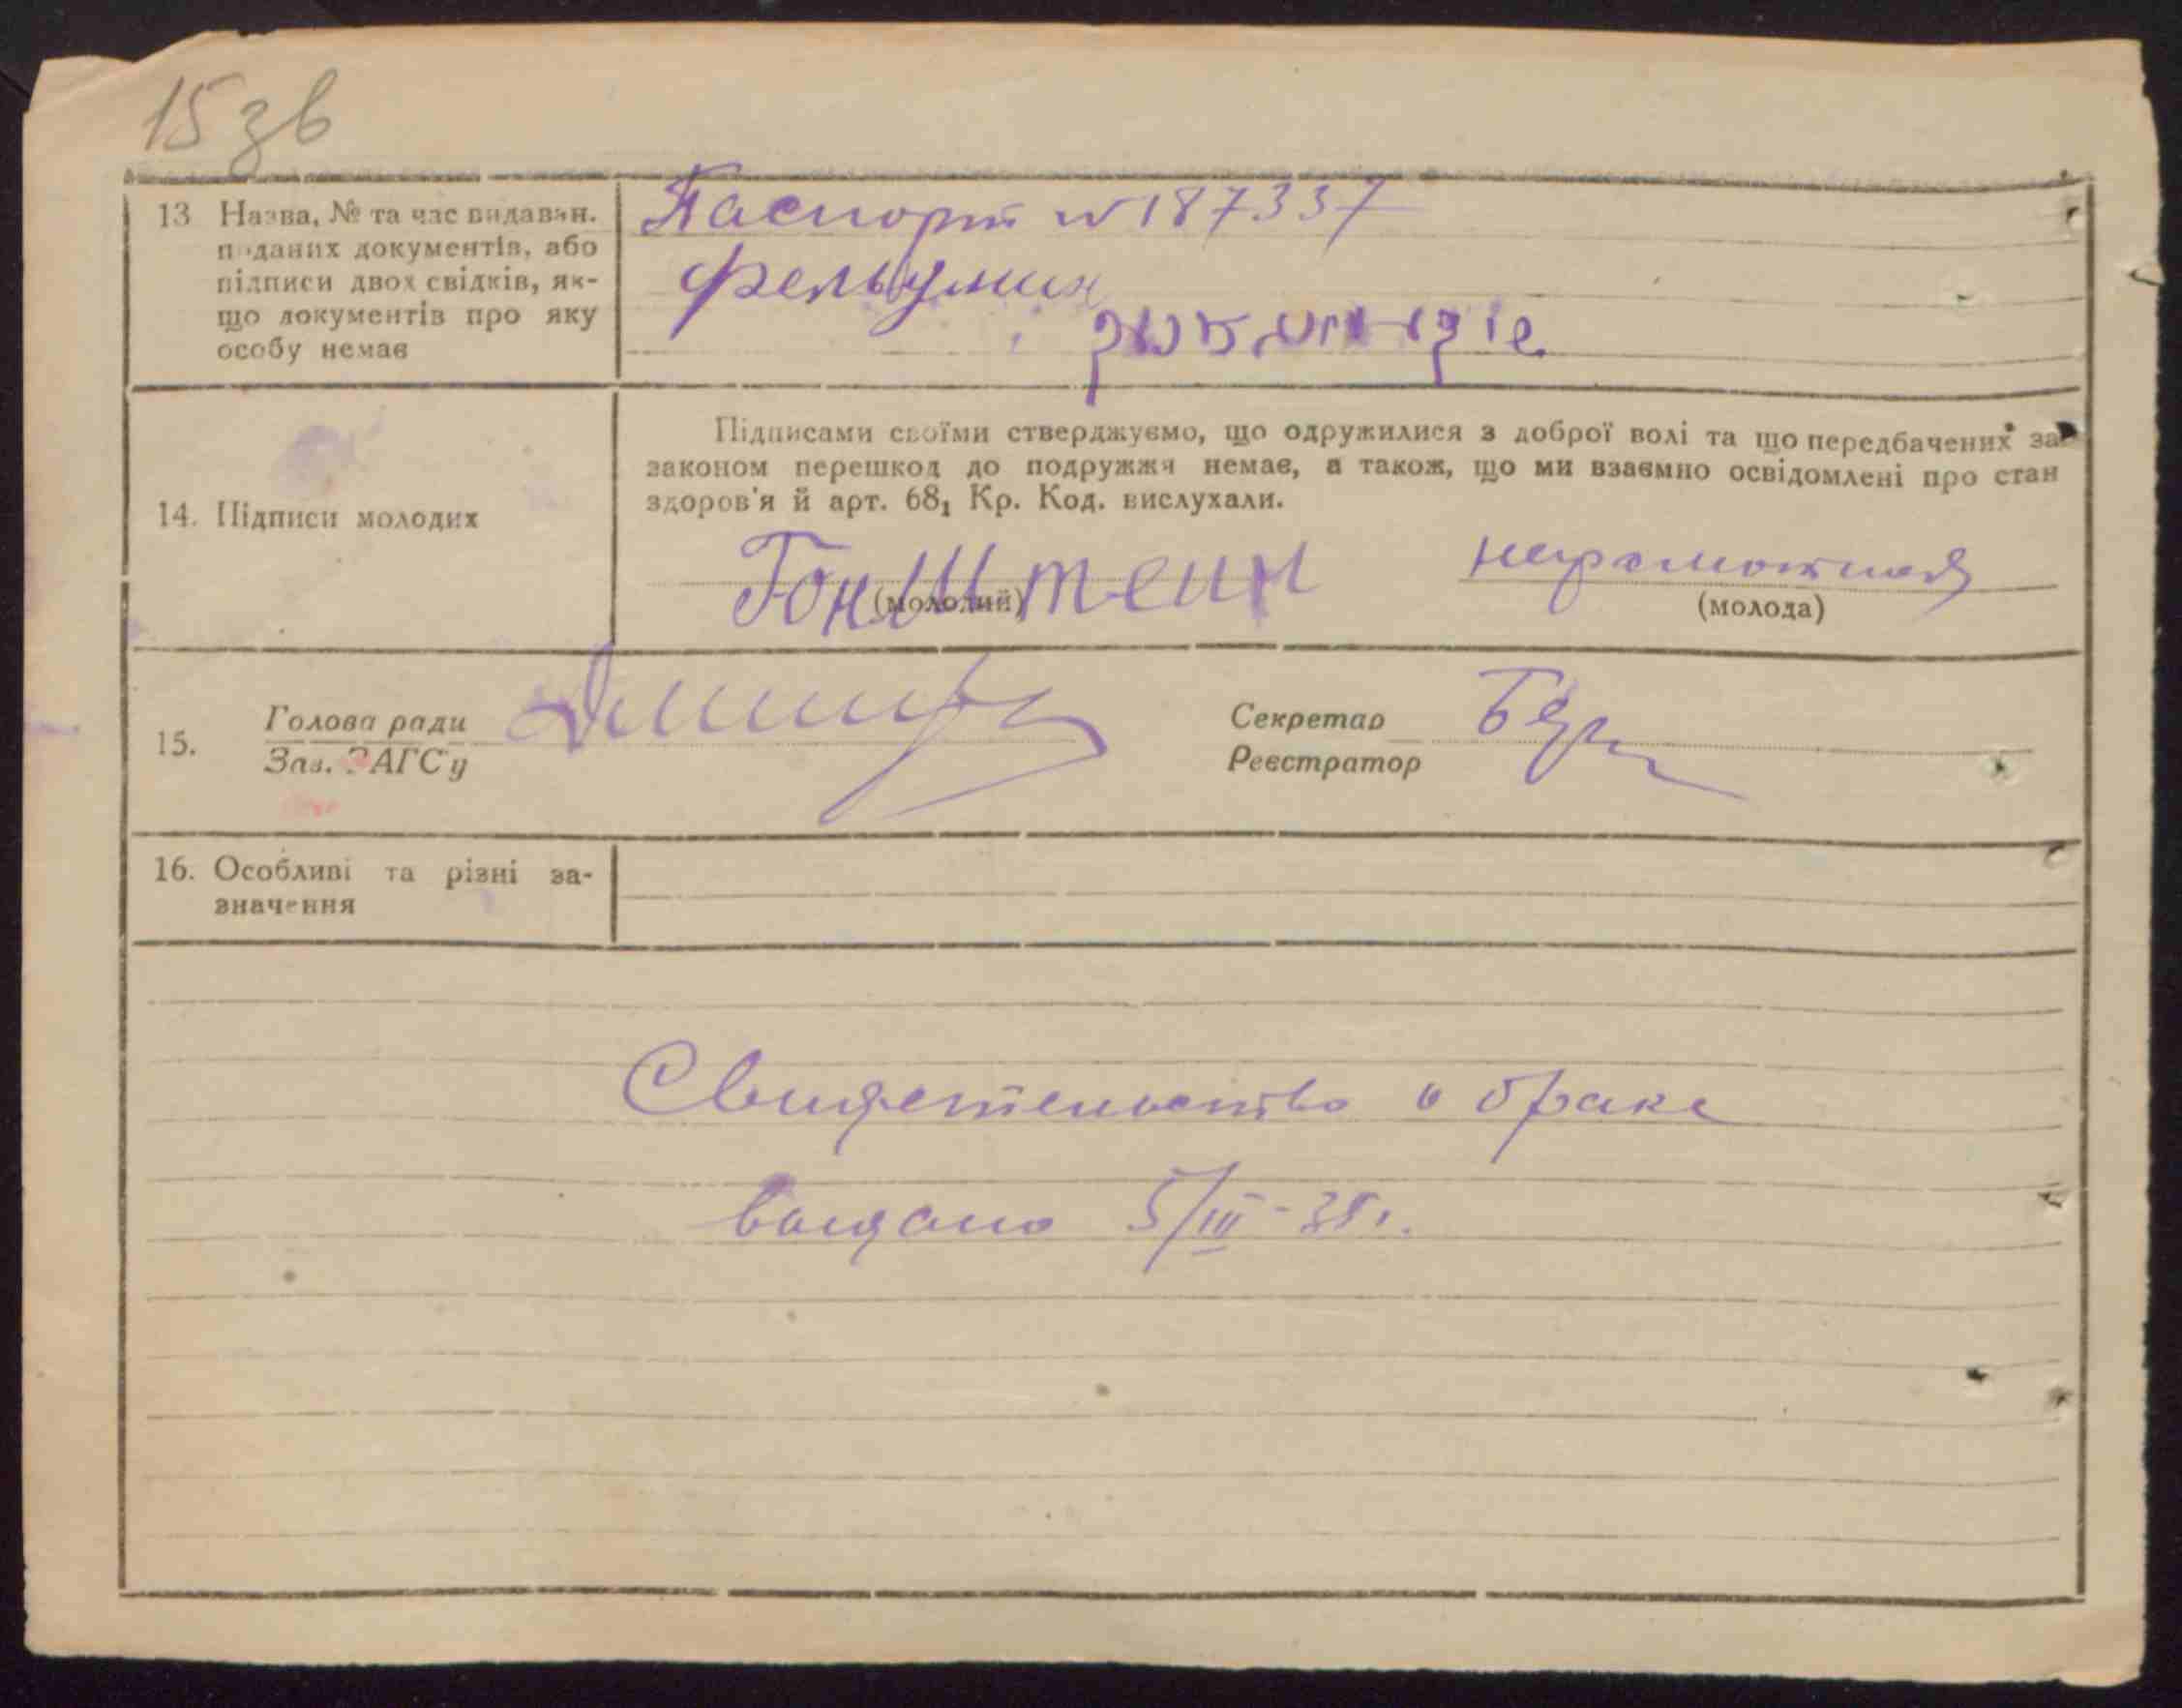 15 зв
13 Назва, № та час видаван.
поданих документів, або
підписи двох свідків, як-
що документів про яку
особу немає
Паспорт № 187337
14. Підписи молодих
Підписами своїми стверджуємо, що одружилися з доброї волі та що передбачених за
законом перешкод до подружжя немає, а також, що ми взаємно освідомлені про стан
здоров'я й арт. 68₁ Кр. Код. вислухали.
Гонштеин неграмотная
(молодий) (молода)
15. Голова ради
Зав. ЗАГСу
Секретар
Реєстратор
16. Особливі та різні за-
значення
Свидетельство о браке
выдано 5/III-